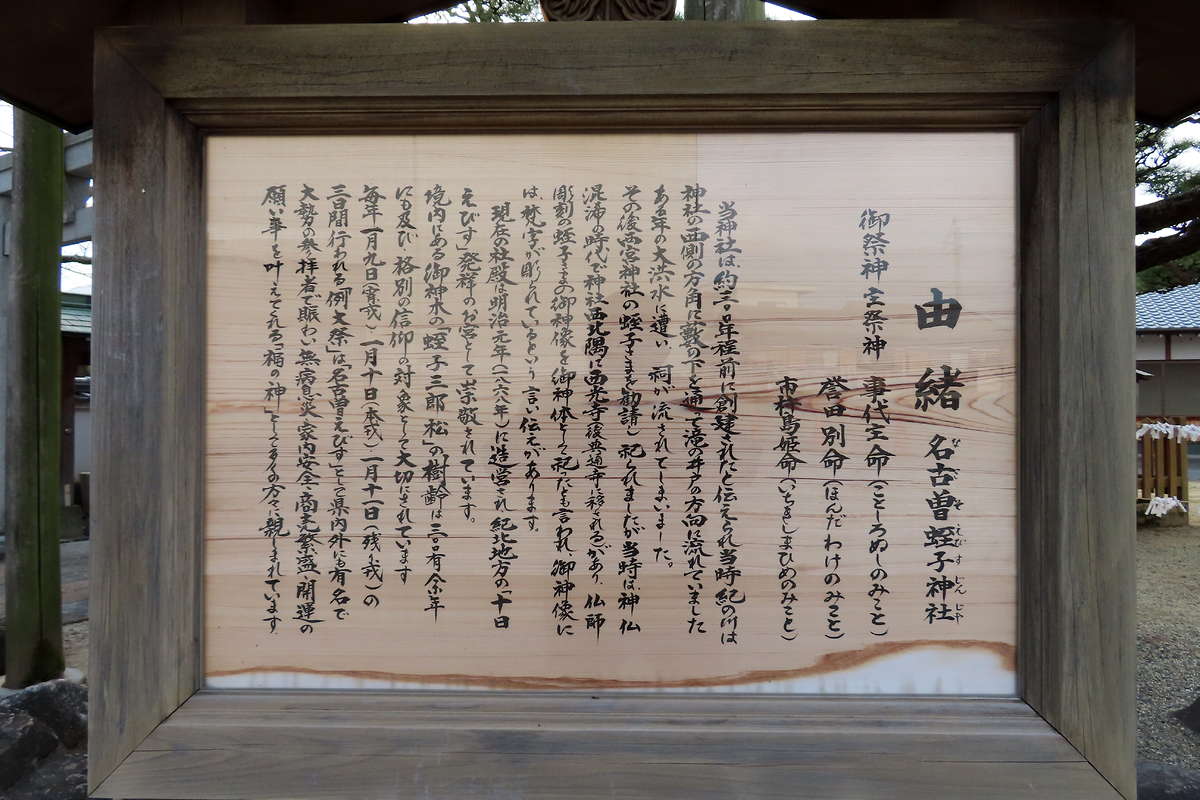 由緒 名古曽蛭子神社
なごそえびすじんじゃ
御祭神 主祭神 事代主命(ことしろぬしのみこと)
誉田別命(ほんだわけのみこと)
市杵島姫命(いちきしまひめのみこと)
当神社は、約三〇〇年程前に創建されたと伝えられ当時紀の川は
神社の西側の方角に藪の下を通って滝の井戸の方向に流れていました
ある年の大洪水に遭い、祠が流されてしまいました。
その後西宮神社の蛭子さまを勧請し祀られましたが当時は神仏
混淆の時代で神社西北隅に西光寺(後興通寺に移される)があり、仏師
彫刻の蛭子さまの御神像を御神体として祀ったとも言われ、御神像に
は、梵字が彫られているという言い伝えがあります。
現在の社殿は明治元年(一八六八年)に造営され紀北地方の「十日
えびす」発祥のお宮として崇敬されています。
境内にある御神木の「蛭子三郎松」の樹齢は三〇〇有余年
にも及び、格別の信仰の対象として大切にされています
毎年一月九日(宵戎)一月十日(本戎)一月十一日(残り戎)の
三日間行われる「例大祭」は「名古曽えびす」として県内外にも有名で
大勢の参拝者で賑わい無病息災・家内安全・商売繁盛・開運の
願い事を叶えてくれる「福の神」として多くの方々に親しまれています。